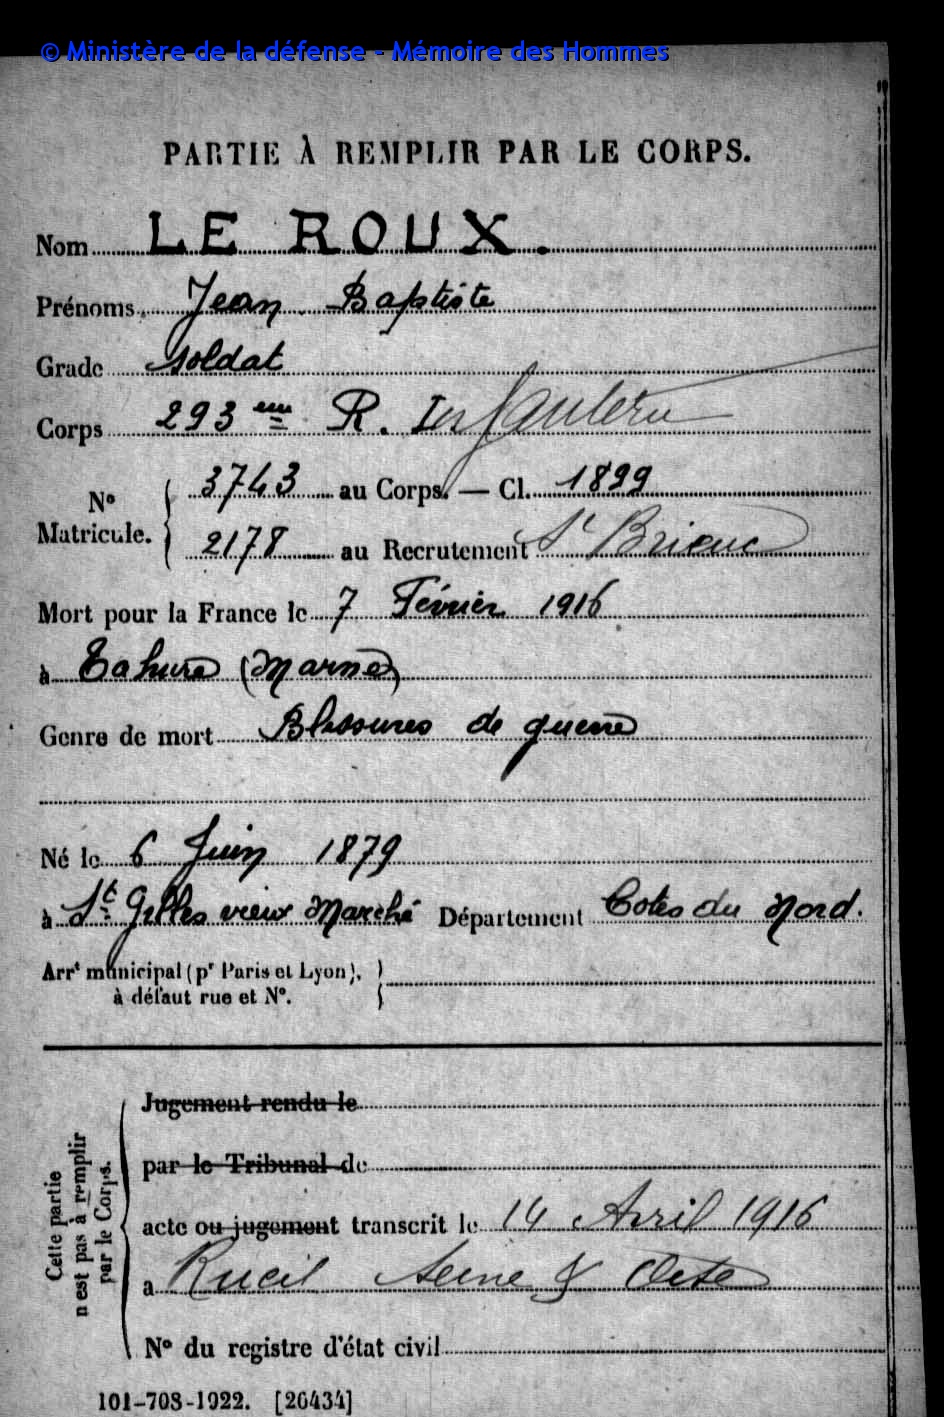 © Ministère de la défense - Mémoire des Hommes
PARTIE À REMPLIR PAR LE CORPS.
Nom LE ROUX.
Prénoms Jean Baptiste
Grade soldat
Corps 293 eme R. Infanterie
N° Matricule. 3743 au Corps. — Cl. 1899
2178 au Recrutement St Brieuc
Mort pour la France le 7 Février 1916
à Tahure (Marne)
Genre de mort Blessures de guerre
Né le 6 Juin 1879
à St Gilles vieux Marché Département Cotes du Nord.
Arrt municipal (pr Paris et Lyon),
à défaut rue et N°.
Cette partie n'est pas à remplir par le Corps.
Jugement rendu le
par le Tribunal de
acte ou jugement transcrit le 14 Avril 1916
à Rueil Seine & Oise
N° du registre d'état civil
101-708-1922. [26434]